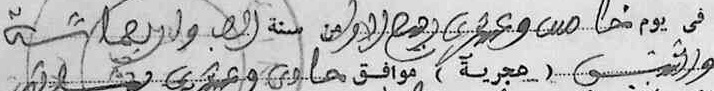 فى يوم خامس وعشرين ربيع الاول من سنة الف واربعمائة
واثنتى ( هجرية ) موافق حادى وعشرين